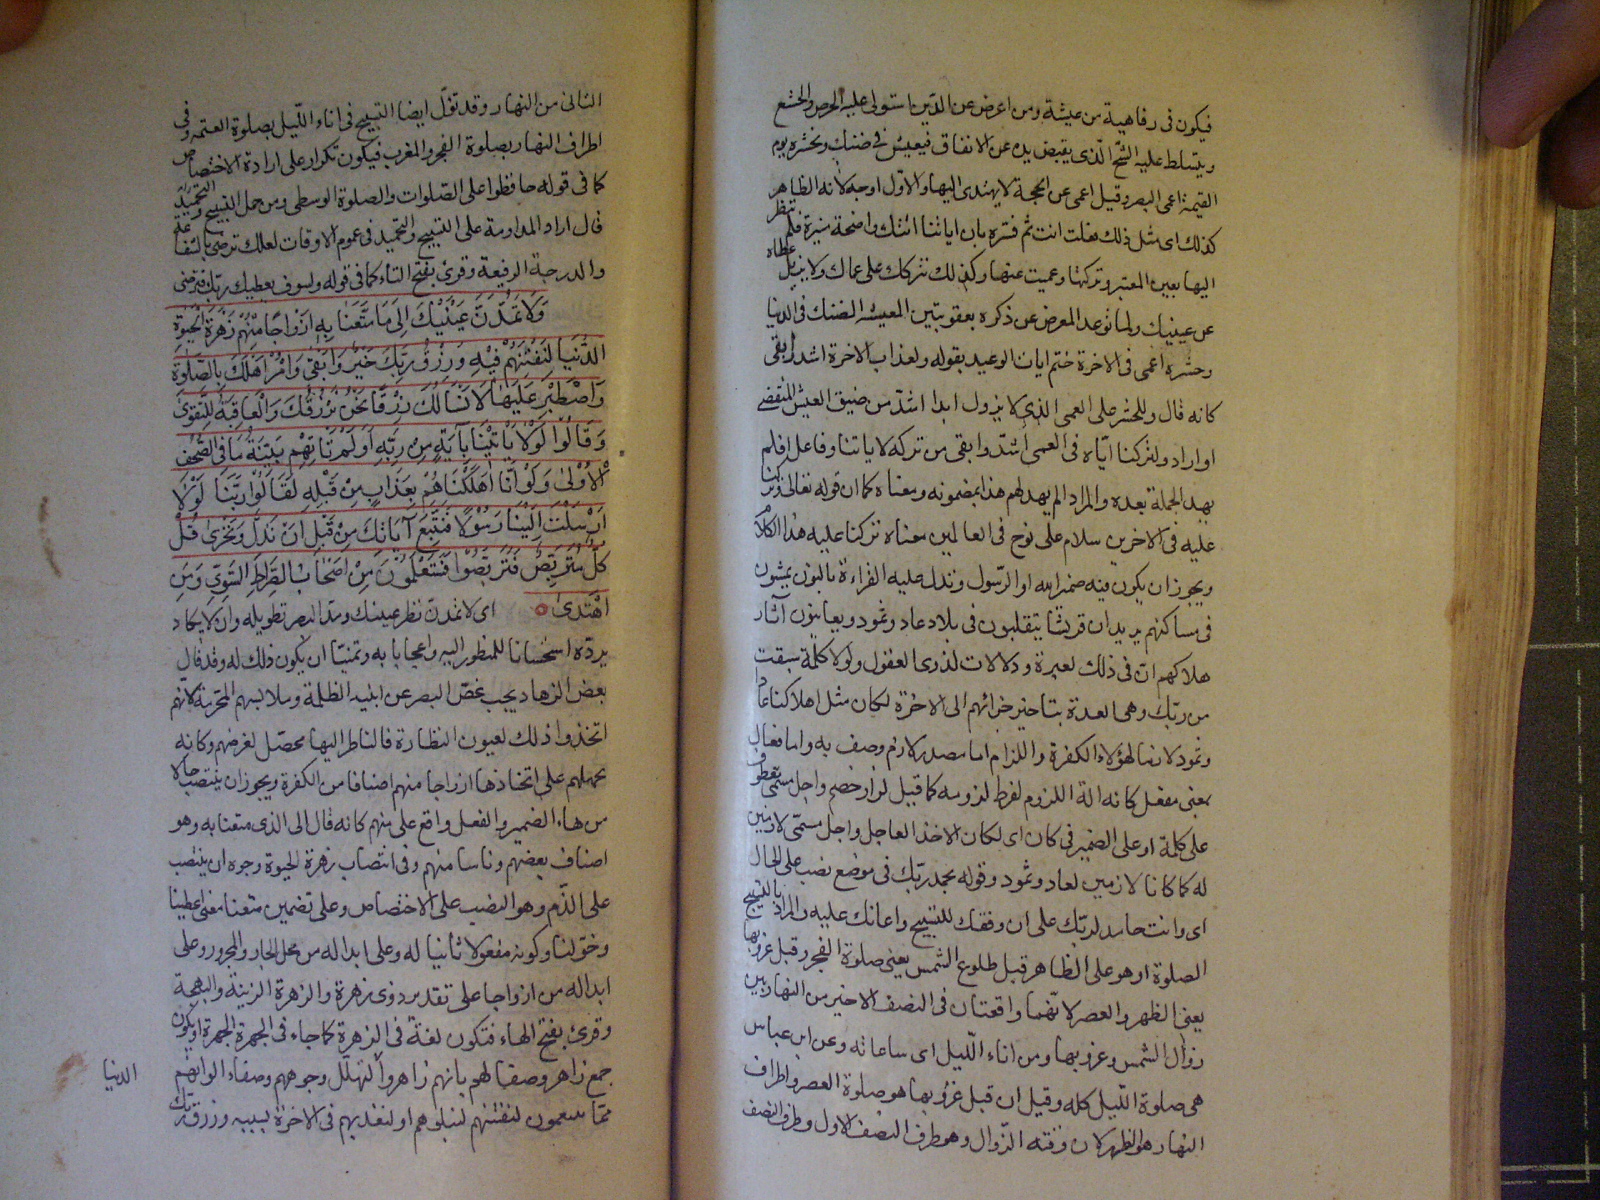 فيكون فى رفاهية من عيشة ومن اعرض عن الدّين استولى عليه الحرص والجشع
ويتسلط عليه الشّح الّذى يقبض يده عن الانفاق فيعيش فى ضنك ونحشره يوم
القيمة اعمى البصر وقيل اعمى عن الحجة لا يهتدى اليها والاوّل اوجه لانه الظاهر
كذلك اى مثل ذلك فعلت انت ثم فسّره بان اياتنا اتتك واضحة منيرة فلم تنظر
اليها بعين المعتبر وتركتها وعميت عنها وكذلك نتركك على عماك ولا نزيل غطاه
عن عينيك ولما توعد المعرض عن ذكره بعقوبتين المعيشة الضنك فى الدنيا
وحشره اعمى فى الاخرة ختم ايات الوعيد بقوله ولعذاب الاخرة اشد وابقى
كانه قال وللحشر على العمى الذى لا يزول ابدا اشدّ من ضيق العيش المنقضى
او اراد ولتركنا ايّاه فى العمى اشدّ وابقى من تركه لاياتنا وفاعل افلم
يهد الجملة بعده والمراد الم يهد لهم هذا بمضمونه ومعناه كما ان قوله تعالى وتركنا
عليه فى الاخرين سلام على نوح فى العالمين معناه تركنا عليه هذا الكلام
ويجوز ان يكون فيه ضمير الله او الرّسول وتدل عليه القراءة بالنون يمشون
فى مساكنهم يريد ان قريشا يتقلبون فى بلاد عاد وثمود ويعاينون آثار
هلاكهم انّ فى ذلك لعبرة ودلالات لذوى العقول ولولا كلمة سبقت
من ربّك وهى العدة بتاخير جزائهم الى الاخرة لكان مثل اهلاكنا عادا
وثمود لازما لهؤلاء الكفرة واللزام اما مصدر لازم وصف به واما فعال
بمعنى مفعل كانه الة اللزوم لفرط لزومه كما قيل لزاز خصم واجل مسمّى معطوف
على كلمة او على الضمير فى كان اى لكان الاخذ العاجل واجل مسمّى لازمين
له كما كانا لازمين لعاد وثمود وقوله بحمد ربّك فى موضع نصب على الحال
اى وانت حامد لربّك على ان وفقك للتسبيح واعانك عليه والمراد بالتسبيح
الصلوة او هو على الظاهر قبل طلوع الشمس يعنى صلوة الفجر وقبل غروبها
يعنى الظهر والعصر لانّهما واقعتان فى النصف الاخير من النهار بين
زوال الشمس وغروبها ومن اناء الّليل اى ساعاته وعن ابن عباس
هى صلوة الّليل كله وقيل ان قبل غروبها هو صلوة العصر واطراف
النهار هو الظهر لان وقته الزّوال وهو طرف النصف الاول وطرف النصف
الثانى من النهار وقد تؤّل ايضا التسبيح فى اناء الّليل بصلوة العتمة وفى
اطراف النهار بصلوة الفجر والمغرب فيكون تكرار على ارادة الاختصاص
كما فى قوله حافظوا على الصّلوات والصلوة الوسطى ومن حمل التسبيح والتحميد
قال اراد المداومة على التسبيح والتحميد فى عموم الاوقات لعلك ترضى بالشفاعة
والدرجة الرفيعة وقرئ بفتح التاء كما فى قوله ولسوف يعطيك ربّك فترضى
وَلَا تَمُدَّنَّ عَيْنَيْكَ اِلَى مَا مَتَّعْنَا بِهِ اَزْوَاجًا مِنْهُمْ زَهْرَةَ الْحَيٰوةِ
الدُّنْيَا لِنَفْتِنَهُمْ فِيْهِ وَرِزْقُ رَبِّكَ خَيْرٌ وَاَبْقٰى وَامُرْ اَهْلَكَ بِالصَّلٰوةِ
وَاصْطَبِرْ عَلَيْهَا لَا نَسْاَلُكَ رِزْقًا نَحْنُ نَرْزُقُكَ وَالْعَاقِبَةُ لِلتَّقْوٰى
وَقَالُوْا لَوْلَا يَاْتِيْنَا بِآيَةٍ مِنْ رَبِّهِ اَوَلَمْ تَاْتِهِمْ بَيِّنَةُ مَا فِى الصُّحُفِ
الْاُوْلٰى وَلَوْ اَنَّا اَهْلَكْنَاهُمْ بِعَذَابٍ مِنْ قَبْلِهِ لَقَالُوْا رَبَّنَا لَوْلَا
اَرْسَلْتَ اِلَيْنَا رَسُوْلًا فَنَتَّبِعَ آيَاتِكَ مِنْ قَبْلِ اَنْ نَذِلَّ وَنَخْزٰى قُلْ
كُلٌّ مُتَرَبِّصٌ فَتَرَبَّصُوْا فَسَتَعْلَمُوْنَ مَنْ اَصْحَابُ الصِّرَاطِ السَّوِىِّ وَمَنِ
اهْتَدٰى اى لا تمدنّ نظر عينيك ومدّ البصر تطويله وان لا يكاد
يردّه استحسانا للمنظور اليه واعجابا به وتمنيّا ان يكون ذلك له وقد قال
بعض الزهاد يجب غضّ البصر عن ابنية الظلمة وملابسهم المحرمة لانّهم
اتخذوا ذلك لعيون النظارة فالناظر اليها محصّل لغرضهم وكانه
يحملهم على اتخاذها ازواجا منهم اصنافا من الكفرة ويجوز ان ينتصب حالا
من هاء الضمير والفعل واقع على منهم كانه قال الى الذى متعنا به وهو
اصناف بعضهم وناسا منهم وفى انتصاب زهرة الحيوة وجوه ان ينتصب
على الذّم وهو النصب على الاختصاص وعلى تضمين متعنا معنى اعطينا
وخوّلنا وكونه مفعولا ثانيا له وعلى ابداله من محل الجار والمجرور وعلى
ابداله من ازواجا على تقدير ذوى زهرة والزهرة الزينة والبهجة
وقرئ بفتح الهاء فتكون لغة فى الزهرة كما جاء فى الجهرة الجهرة او يكون
جمع زاهر وصفا لهم بانهم زاهروا الدنيا لتهلّل وجوههم وصفاء الوانهم
ممّا ينعمون لنفتنهم لنبلوهم او لنعذبهم فى الاخرة بسببه ورزق ربّك
الدنيا